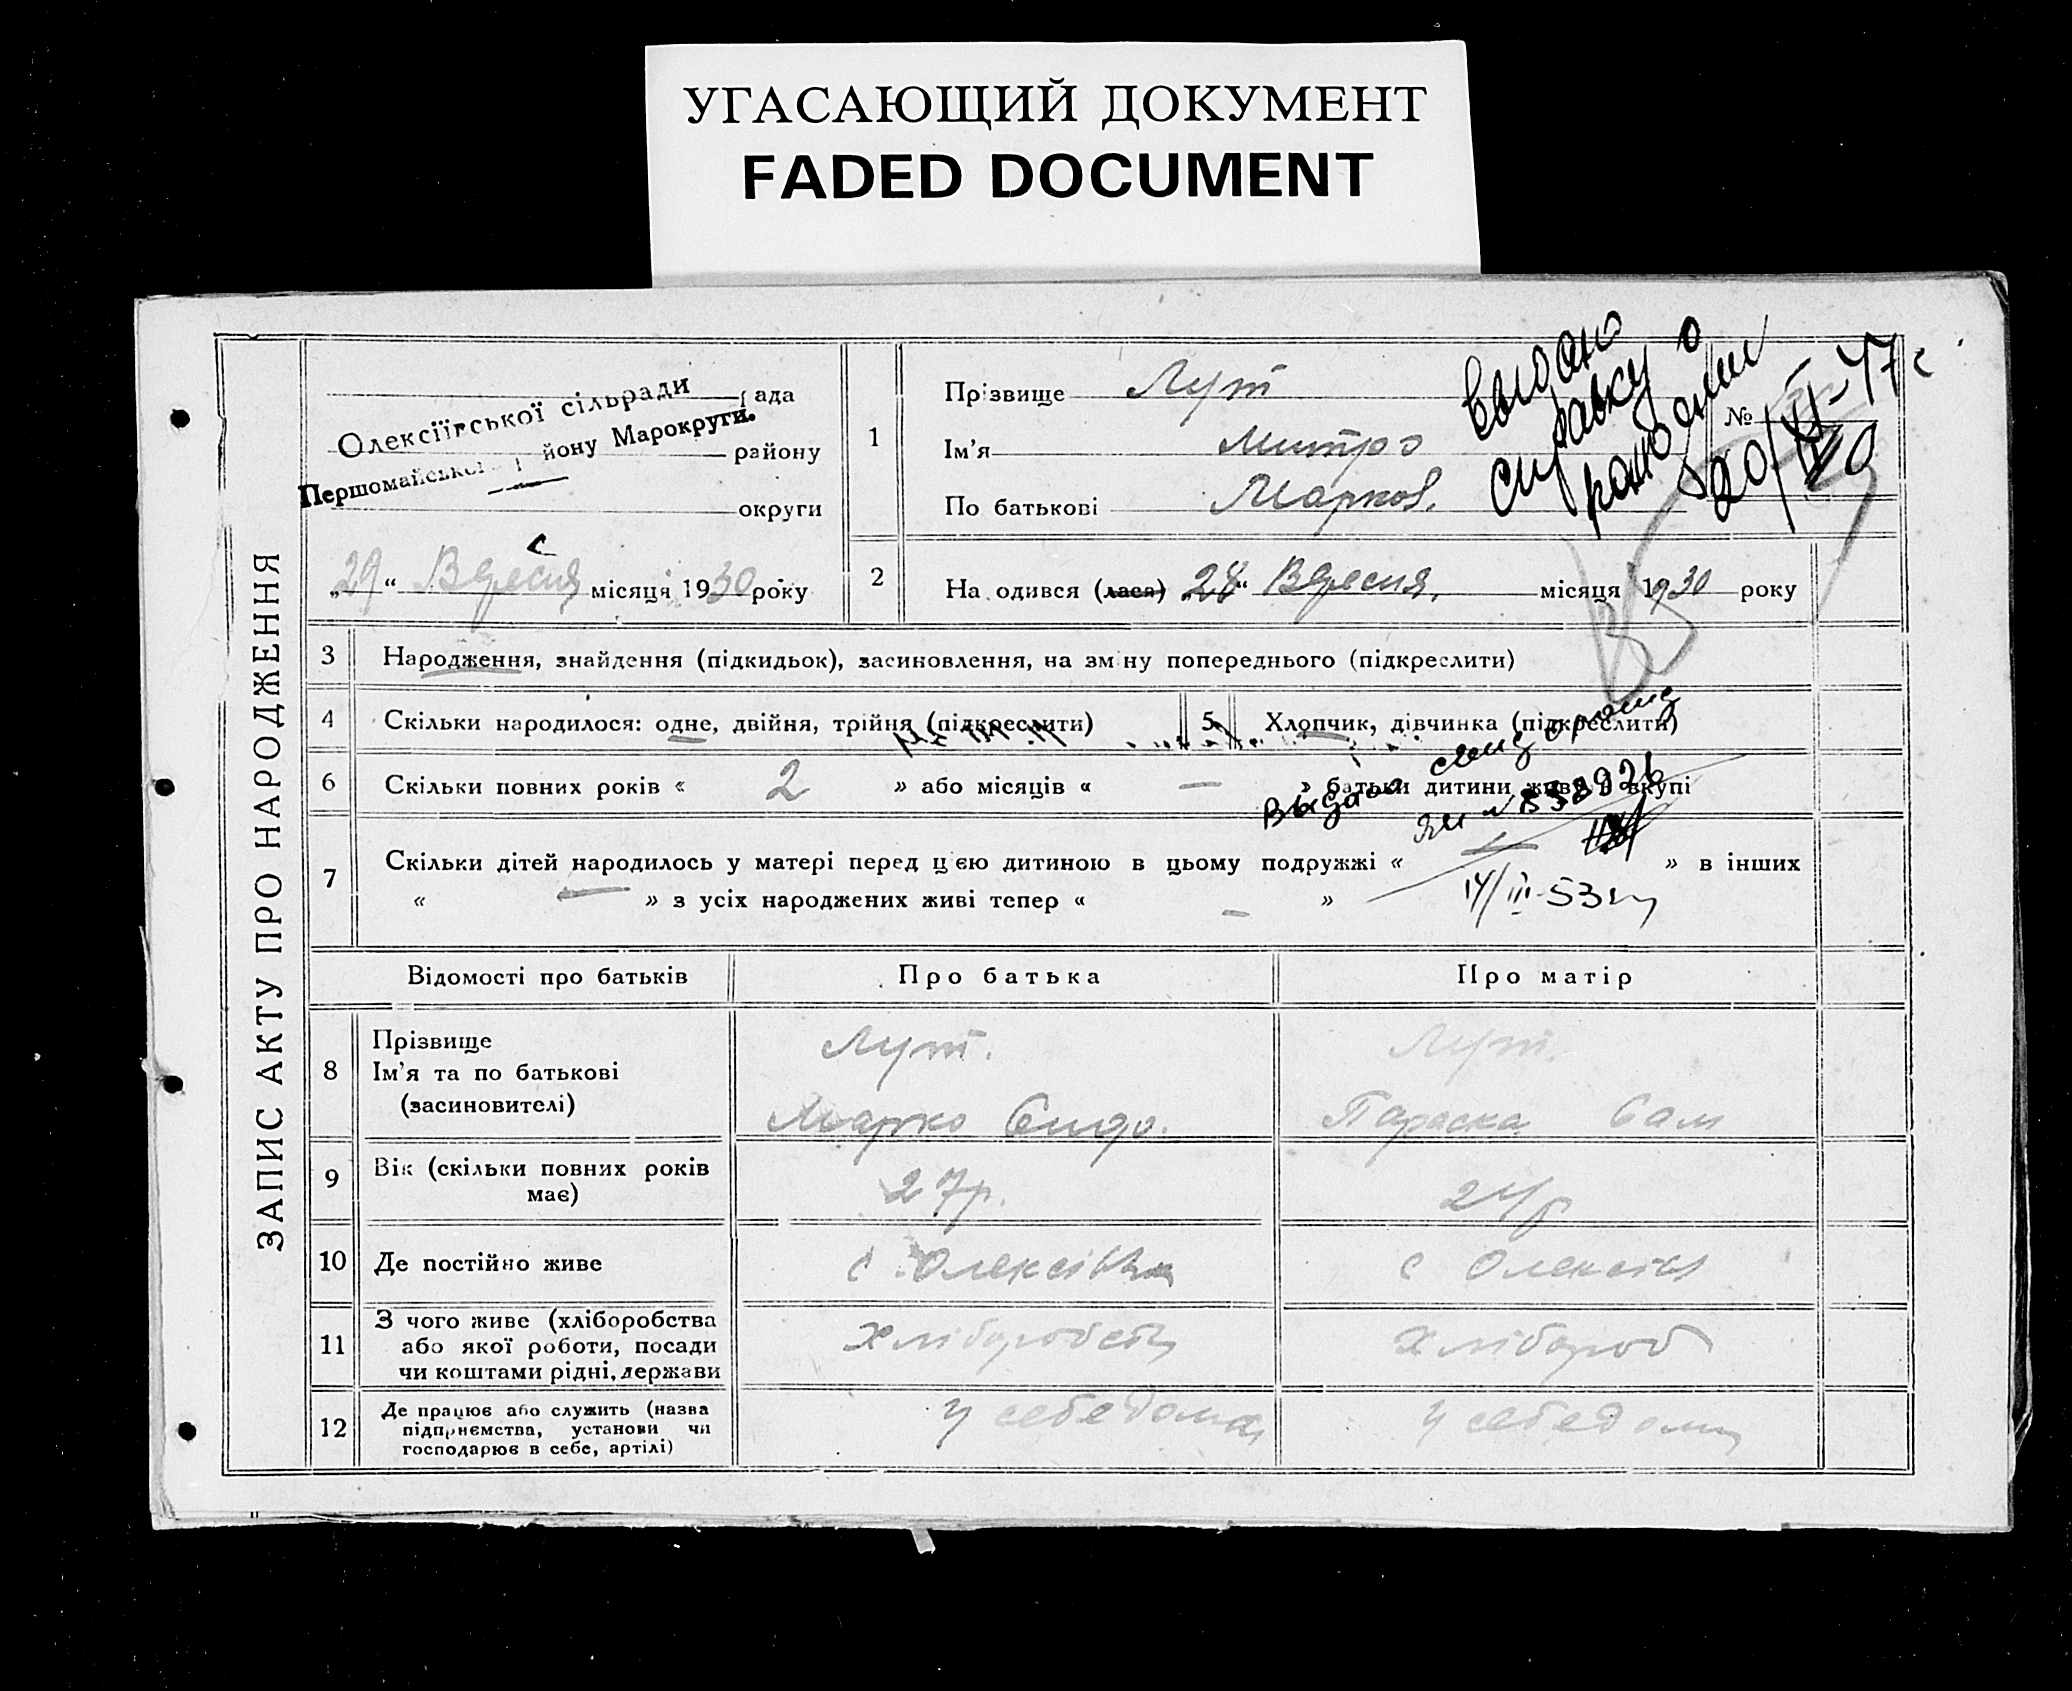 УГАСАЮЩИЙ ДОКУМЕНТ
FADED DOCUMENT
ЗАПИС АКТУ ПРО НАРОДЖЕННЯ
рада
Олексіївської сільради
району
Першомайської району Марокруги.
округи
„29“ Вересня місяця 1930 року
1
Прізвище Лут
Ім'я Митро
По батькові Марков.
№
Выдано
справку о
рождении
20/XI-47г
2
На одився (лася) „28“ Вересня. місяця 1930 року
3
Народження, знайдення (підкидьок), засиновлення, на зміну попереднього (підкреслити)
4
Скільки народилося: одне, двійня, трійня (підкреслити)
5
Хлопчик, дівчинка (підкреслити)
6
Скільки повних років « 2 » або місяців « — » батьки дитини живуть вкупі
Выдано
7
Скільки дітей народилось у матері перед цією дитиною в цьому подружжі « — » в інших
« — » з усіх народжених живі тепер « — »
14/III-53
Відомості про батьків
Про батька
Про матір
8
Прізвище
Ім'я та по батькові
(засиновителі)
Лут.
Марко Сидо.
Лут.
Параска Сам
9
Вік (скільки повних років
має)
27р.
24р
10
Де постійно живе
с Олексіївка
с Олексіїв
11
З чого живе (хліборобства
або якої роботи, посади
чи коштами рідні, держави
Хліборобств
Хлібороб
12
Де працює або служить (назва
підприємства, установи чи
господарює в себе, артілі)
у себе дома
у себе дома